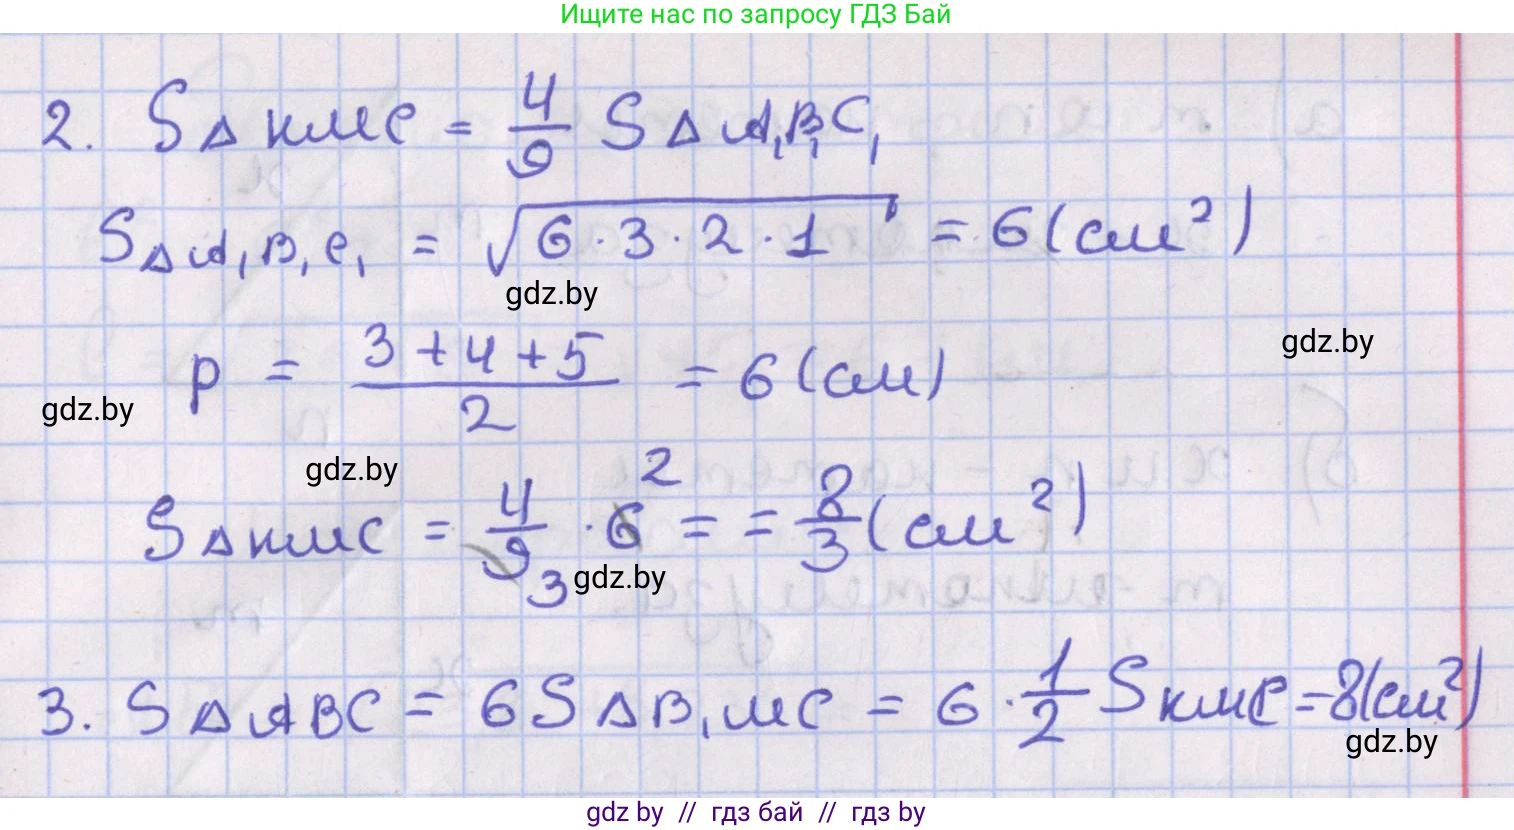 Ищите нас по запросу ГДЗ Бай
2. S△KMC = 4/9 S△A₁B₁C₁
S△A₁B₁C₁ = √(6·3·2·1) = 6 (см²)
gdz.by
gdz.by
p = (3+4+5)/2 = 6 (см)
gdz.by
gdz.by
S△KMC = 4/9 3 · 6 2 = = 8/3 (см²)
gdz.by
3. S△ABC = 6S△B₁MC = 6 · 1/2 SKMC = 8 (см²)
gdz.by
gdz by // гдз бай // гдз by